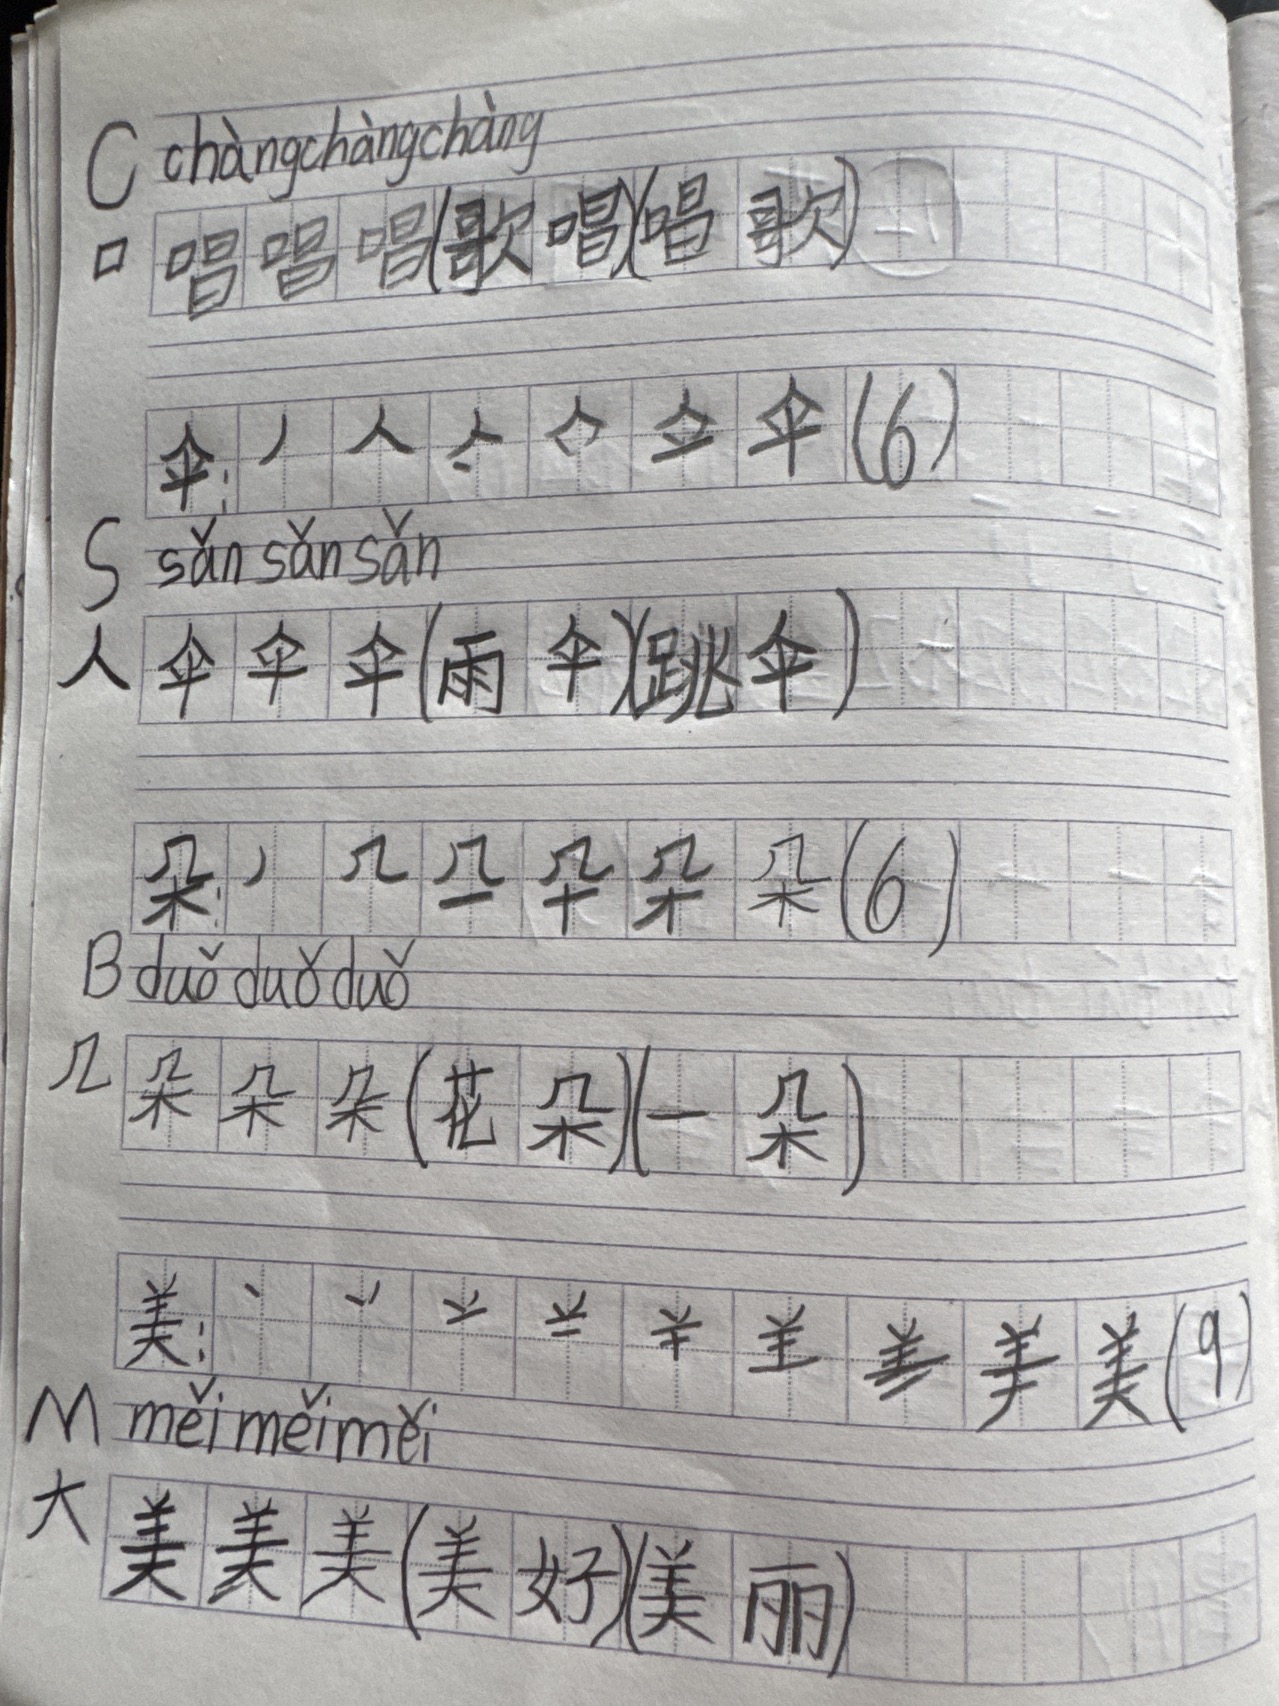 C chàngchàngchàng
口 唱唱唱(歌唱)(唱歌)
伞: 丿 人 (6)
S sǎn sǎn sǎn
人 伞伞伞(雨伞)(跳伞)
朵: 丿 几 朵 朵 (6)
B duǒ duǒ duǒ
几 朵朵朵(花朵)(一朵)
美: 丶 美 (9)
M měi měi měi
大 美美美(美好)(美丽)